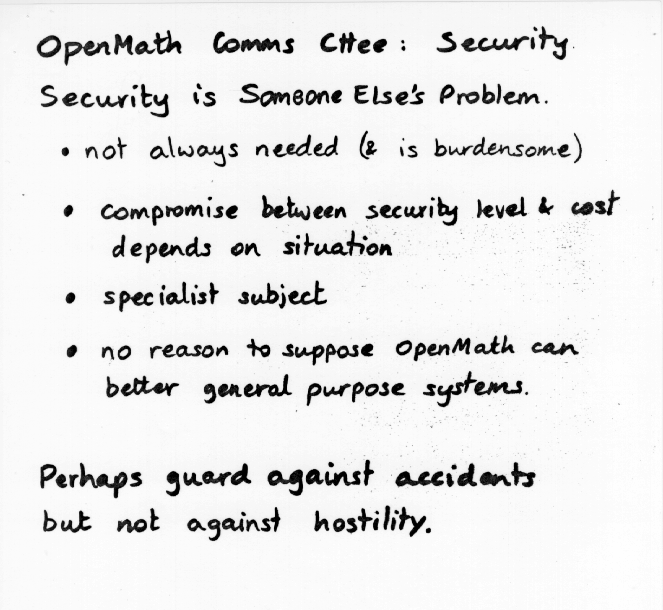 OpenMath Comms CHee: Security.
Security is Someone Else's Problem.
• not always needed (& is burdensome)
• compromise between security level & cost
depends on situation
• specialist subject
• no reason to suppose OpenMath can
better general purpose systems.
Perhaps guard against accidents
but not against hostility.